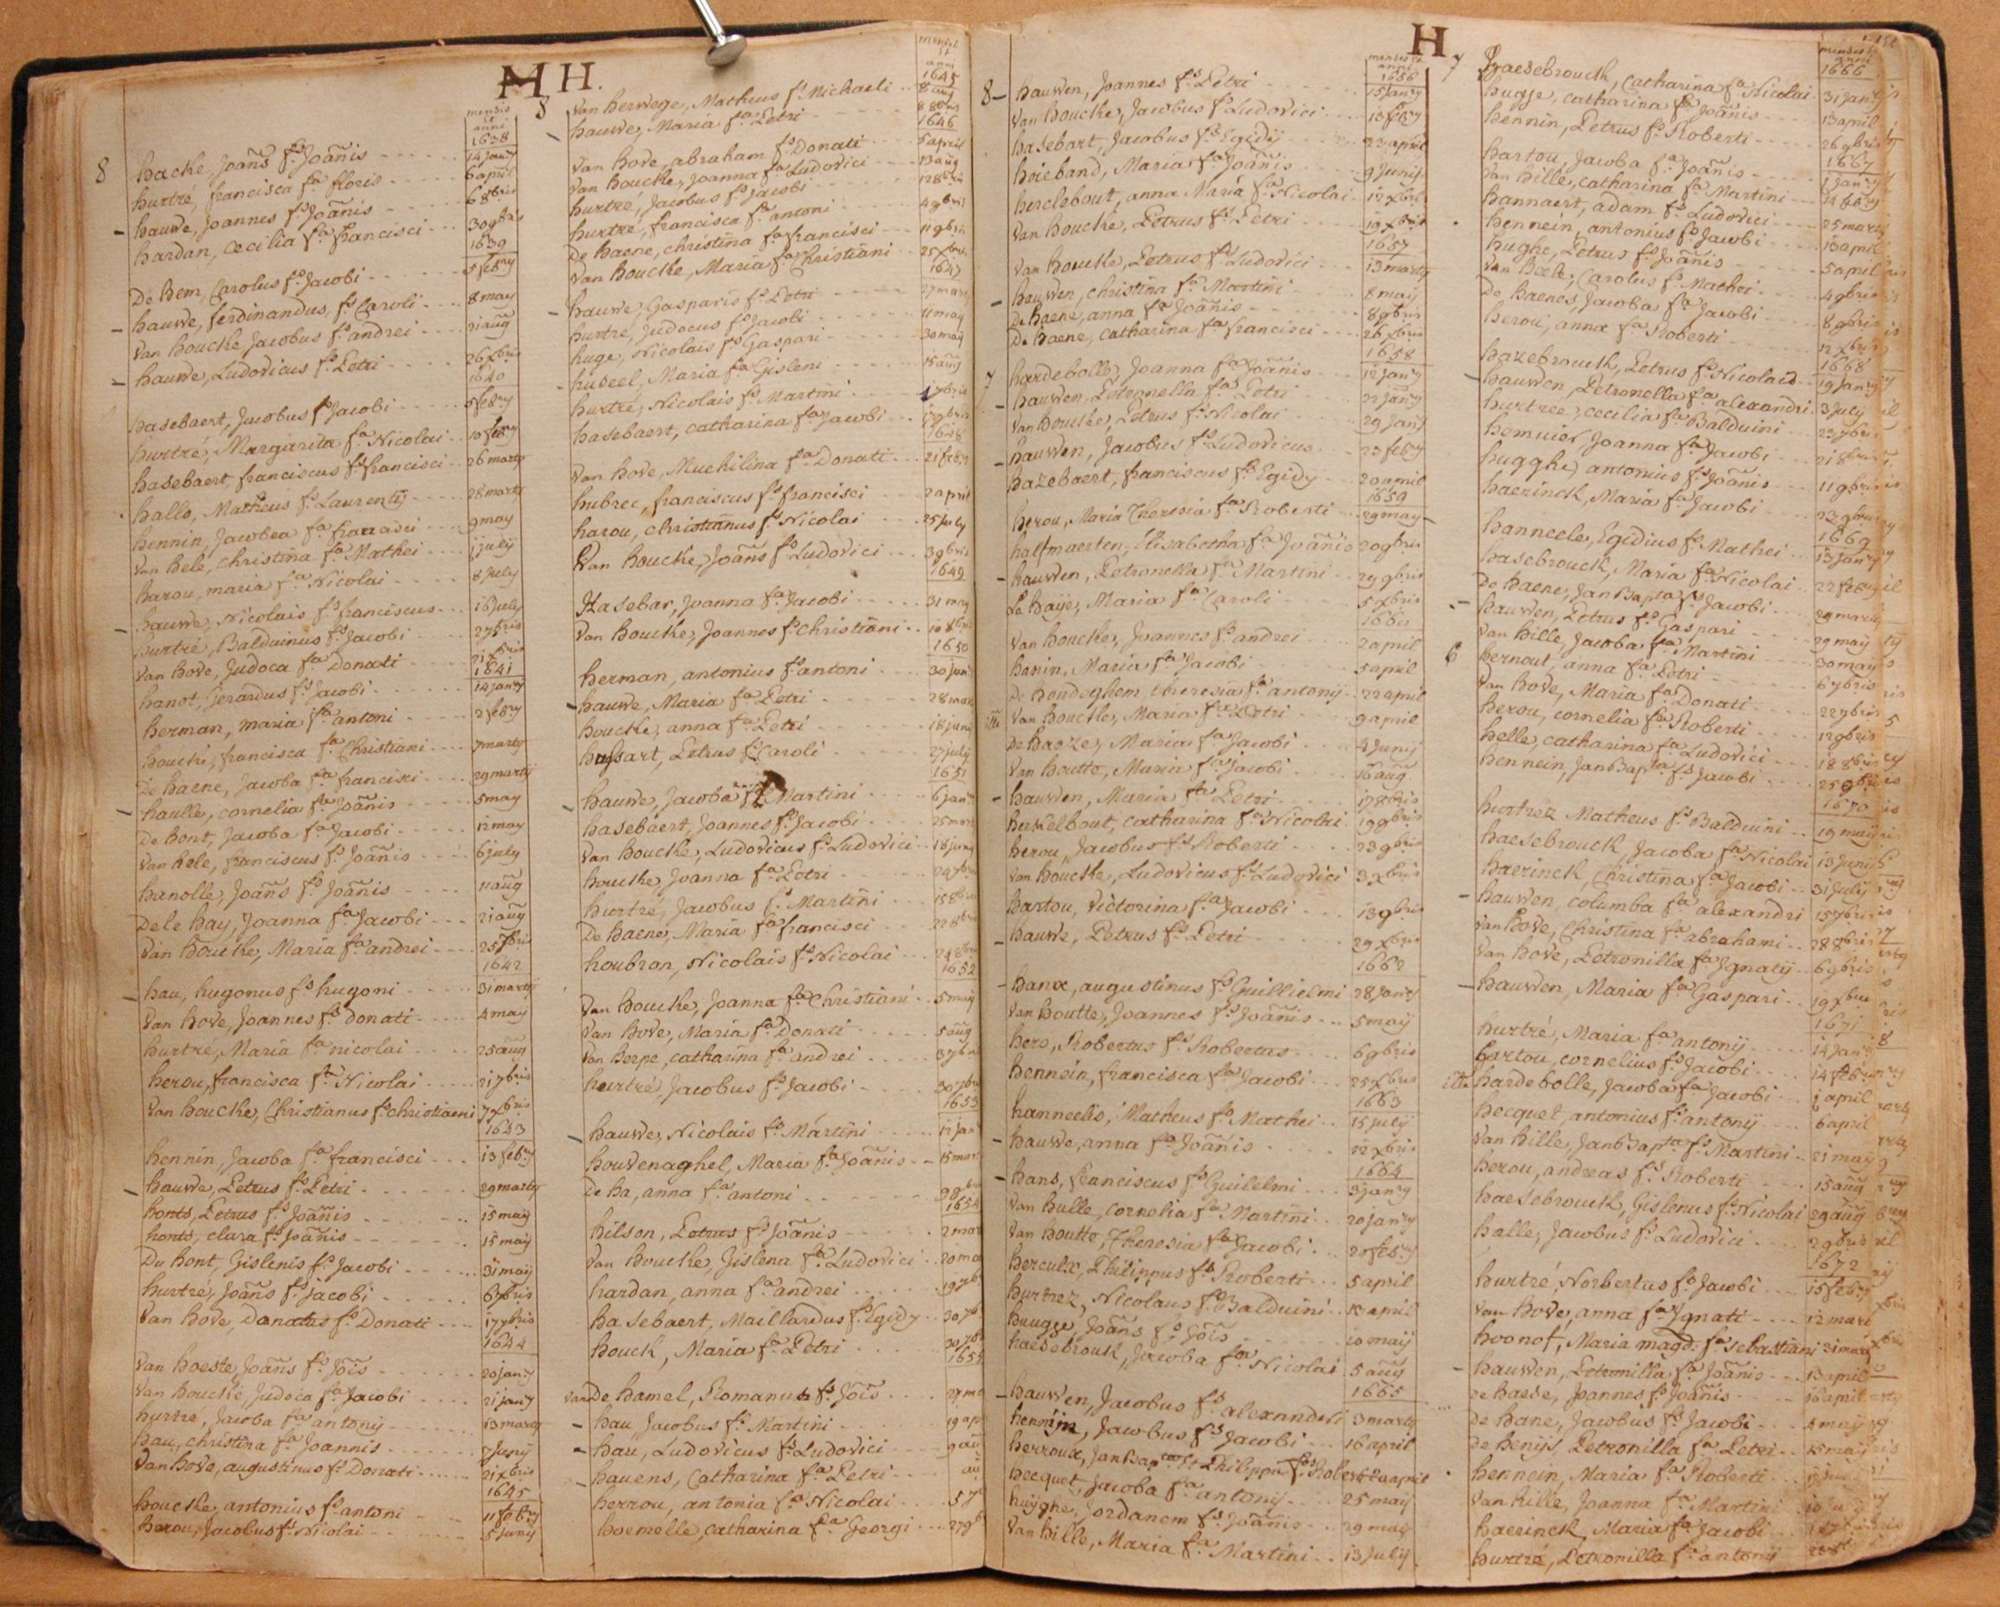 H H.
mensis
et
anni
1638
8 hacke, Joan̄s fs Joan̄is 14 Janry
hurtré, francisca fa floris 6 april
hauwe, Joannes fs Joan̄is 6 8bris
hardan, Cecilia fa francisci 30 9bris
1639
De hem, Carolus fs Jacobi 5 febry
hauwe, ferdinandus fs Caroli 8 may
Van houcke Jacobus fs andrei 21 aug̃
hauwe, Ludovicus fs Petri 26 xbris
1640
hasebaert, Jacobus fs Jacobi febry
hurtré, Margarita fa Nicolai 10 febry
hasebaert franciscus fs francisci 26 marty
hallo, Matheus fs Laurentij 28 marty
hennin, Jacobea fa francisci 9 may
Van hele, Christina fa Mathei july
harou, maria fa Nicolai 8 July
hauwe, Nicolais fs franciscus 16 july
hurtré, Balduinus fs Jacobi 2 7bris
Van hove, Judoca fa Donati 21 xbris
1641
hanot, Gerardus fs Jacobi 14 janry
herman, maria fa antoni 2 febry
houcké, francisca fa Christiani 7 marty
De haene, Jacoba fa francisci 29 marty
haulle, cornelia fa Joan̄is 5 may
De hont, Jacoba fa Jacobi 12 may
Van hele, franciscus fs Joan̄is 6 july
hanolle, Joan̄s fs Joan̄is 11 aug̃
De le hay, Joanna fa Jacobi 21 aug̃
Van houcke, Maria fa andrei 25 xbris
1642
hau, hugonus fs hugoni 31 marty
Van hove, Joannes fs donati 4 may
hurtré, Maria fa nicolai 25 aug̃
herou, francisca fa Nicolai 21 7bris
Van houcke, Christianus fs christiaeni 7 xbris
1643
hennin, Jacoba fa francisci 13 febry
hauwe, Petrus fs Petri 29 marty
honts, Petrus fs Joan̄is 15 may
honts, clara fs Joan̄is 15 may
Du hont, Gislenis fs Jacobi 31 may
hurtré, Joan̄s fs jacobi 6 7bris
Van hove, Donatus fs Donati 17 7bris
1644
Van hoeste, Joan̄s fs Jōis 20 janry
Van houcke Judoca fa Jacobi 21 janry
hurtré, Jacoba fa antonij 13 marty
hau, christina fa Joannis 7 Juny
Van hove, augustinus fs Donati 21 xbris
1645
houcke, antonius fs antoni 11 febry
herou, Jacobus fs Nicolai 5 juny
mensis
et
anni
1645
8 Van herwege, Matheus fs Michaeli 8 aug
hauwe, Maria fa Petri 8 8bris
1646
Van hove, abraham fs Donati 5 april
Van houcke, Joanna fa Ludovici 13 aug
hurtré, Jacobus fs Jacobi 12 8bris
hurtré, francisca fa antoni 4 9bris
De haene, christina fa francisci 11 9bris
Van houcke, Maria fa Christiani 25 xbris
1647
hauwe, Gasparis fs Petri 27 mar
hurtré, Judocus fs Jacobi 11 may
huge, Nicolais fs Gaspari 30 may
huseel, Maria fa Gisleni 15 aug̃
hurtré, Nicolais fs Martini 7bris
hasebaert, catharina fa Jacobi 17 9bris
1648
Van hove, Muehilina fa Donati 21 febry
hubrec, franciscus fs francisci 2 april
harou, christianus fs Nicolai 25 july
Van houcke, Joan̄s fs Ludovici 3 9bris
1649
Hasebar, Joanna fa Jacobi 31 may
Van houcke, Joannes fs christiani 10 8bris
1650
herman, antonius fs antoni 30 jan
hauwe, Maria fa Petri 28 mar
houcke, anna fa Petri 18 june
hassart, Petrus fs Caroli 27 july
1651
hauwe, Jacoba fa Martini 6 jan
hasebaert, Joannes fs Jacobi 25 mar
Van houcke, Ludovicus fs Ludovici 18 jun
houcke Joanna fa Petri 24 7b
hurtré, Jacobus fs Martini 15 8bris
De haene, Maria fa francisci 22 8bris
houbran, Nicolais fs Nicolai 24 8bris
1652
Van houcke, Joanna fa Christiani 5 may
Van hove, Maria fa Donati 5 aug
Van herpe, catharina fa andrei 3 7b
hurtré, Jacobus fs Jacobi 30 7b
1653
hauwe, Nicolais fs Martini 12 jan
houvenaghel, Maria fa Joan̄is 15 mar
De ha, anna fa antoni 9 9b
1654
hilson, Petrus fs Joan̄is 2 mar
Van houcke, Gislena fa Ludovici 20 ma
hardan, anna fa andrei 19 7b
hasebaert, Maillardus fs Egidy 30 7b
houck, Maria fa Petri 30 7b
1655
van De hamel, Romanus fs Jōis 27 ma
hau, Jacobus fs Martini 19 apr
hau, Ludovicus fs Ludovici 9 au
hauens, Catharina fa Petri au
herrou, antonia fa Nicolai 5 7
hoemelle, catharina fa Georgi 27 9b
H
mensis et
anni
1656
8 hauwen, Joannes fs Petri 15 janry
Van houcke, Jacobus fs Ludovici 10 febry
hasebart, Jacobus fs Egidij 23 april
hoieband, Maria fa Joan̄is 9 Junij
herclebout, anna Maria fa Nicolai 12 xbris
Van houcke, Petrus fs Petri 19 xbris
1657
Van houcke, Petrus fs Ludovici 13 marty
hauwen, christina fa Martini 8 maij
De haene, anna fa Joan̄is 8 9bris
De haene, catharina fa francisci 26 xbris
1658
7 hardebolle, Joanna fa Joan̄is 12 janry
hauwen, Petronella fa Petri 22 janry
Van houcke, Petrus fs Nicolai 29 janry
hauwen, Jacobus fs Ludovicus 23 febry
hazebaert, franciscus fs Egidy 20 april
1659
herou, Maria Theresia fa Roberti 29 may
halfmaerten, Elisabetha fa Joan̄is 20 9bris
hauwen, Petronella fa Martini 29 9bris
Le haije, Maria fa Caroli 5 xbris
1660
Van houcke, Joannes fs andrei 2 april
hanin, Maria fa Jacobi 5 april
De hondeghem theresia fa antonij 22 april
Van houcke, Maria fa Petri 9 april
De haeze, Maria fa Jacobi 4 Junij
Van houtte, Maria fa Jacobi 16 aug̃
hauwen, Maria fa Petri 17 8bris
herkelbout, catharina fa Nicolai 19 9bris
herou, Jacobus fs Roberti 23 9bris
Van houcke, Ludovicus fs Ludovici 3 xbris
hartou, Victorina fa Jacobi 13 9bris
hauwe, Petrus fs Petri 29 xbris
1662
hanx, augustinus fs Guillielmi 28 janry
Van houtte, Joannes fs Joan̄is 5 maij
hero, Robertus fs Robertus 6 9bris
hennein, francisca fa Jacobi 25 xbris
1663
hanneelis, Matheus fs Mathei 15 july
hauwe, anna fa Joan̄is 22 xbris
1664
hans, franciscus fs Guilielmi 3 janry
Van hulle, cornelia fa Martini 20 janry
Van houtte, Theresia fa Jacobi 20 febry
hercule, Philippus fs Roberti 5 april
hurtrez, Nicolaus fs Balduini 10 april
huugge, Joan̄s fs Jōis 10 maij
haesebrouck, Jacoba fa Nicolai 5 aug
1665
hauwen, Jacobus fs alexandri 3 marty
hennijn, Jacobus fs Jacobi 16 april
herroux, Jan Bapta et Philippa fs Roberti april
hecquet, Jacoba fa antonij 25 maij
huijghe, Jordanem fs Joan̄is 29 may
Van hille, Maria fa Martini 13 july
mensis et
anni
1666
7 haesebrouck, Catharina fa Nicolai 31 janry
hugge, catharina fa Joan̄is 13 april
hennin, Petrus fs Roberti 26 9bris
1667
hartou, Jacoba fa Joan̄is 1 janry
Van hille, catharina fa Martini febry
hannaert, adam fs Ludovici 25 marty
hennein, antonius fs Jacobi 10 april
hughe, Petrus fs Joan̄is 5 april
Van heele, Carolus fs Mathei 4 9bris
De haenes, Jacoba fa Jacobi 8 9bris
herou, anna fa Roberti 12 xbris
1668
hazebrouck, Petrus fs Nicolaus 19 janry
hauwen, Petronella fa alexandri 3 july
hurtree, cecilia fa Balduini 23 7bris
hemuier, Joanna fa Jacobi 21 8bris
hugghe, antonius fs Joan̄is 11 9bris
haerinck, Maria fa Jacobi 23 9bris
1669
hanneele, Egidius fs Mathei 13 janry
hasebrouck, Maria fa Nicolai 22 feb
De haene, Jan Bapta fs Jacobi 29 marty
hauwen, Petrus fs Gaspari 29 maij
Van hille, Jacoba fa Martini 30 maij
6 hernout, anna fa Petri 6 7bris
Van hove, Maria fa Donati 22 9bris
herou, cornelia fa Roberti 12 9bris
helle, catharina fa Ludovici 18 8bris
hennein, Jan Bapta fs Jacobi 25 9bris
1670
hurtrez Matheus fs Balduini 19 maij
haesebrouck Jacoba fa Nicolai 13 Junij
haerinck Christina fa Jacobi 31 july
hauwen, columba fa alexandri 15 7bris
Van hove, Christina fa abrahami 28 8bris
Van hove, Petronilla fa Ignatij 6 9bris
hauwen, Maria fa Gaspari 19 xbris
1671
hurtré, Maria fa antonij 14 janry
hartou, cornelius fs Jacobi 14 febry
hardebolle, Jacoba fa Jacobi april
hecquet, antonius fs antonij 6 april
Van hille, Jan Bapta fs Martini 21 maij
herou, andreas fs Roberti 15 aug̃
haesebrouck, Gislenus fs Nicolai 29 aug̃
halle, Jacobus fs Ludovici 2 9bris
1672
hurtré, Norbertus fs Jacobi 15 febry
Van hove, anna fa Ignati 12 mart
hoonof, Maria magd. fa sebastiani 21 mart
hauwen, Petronilla fa Joan̄is 13 april
De haese, Joannes fs Joan̄is 16 april
de hane, Jacobus fs Jacobi 4 maij
de henijs, Petronilla fa Petri 15 maij
hennein, Maria fa Roberti
Van hille, Joanna fa Martini
haerinck, Maria fa Jacobi
hurtré, Petronilla fa antonij